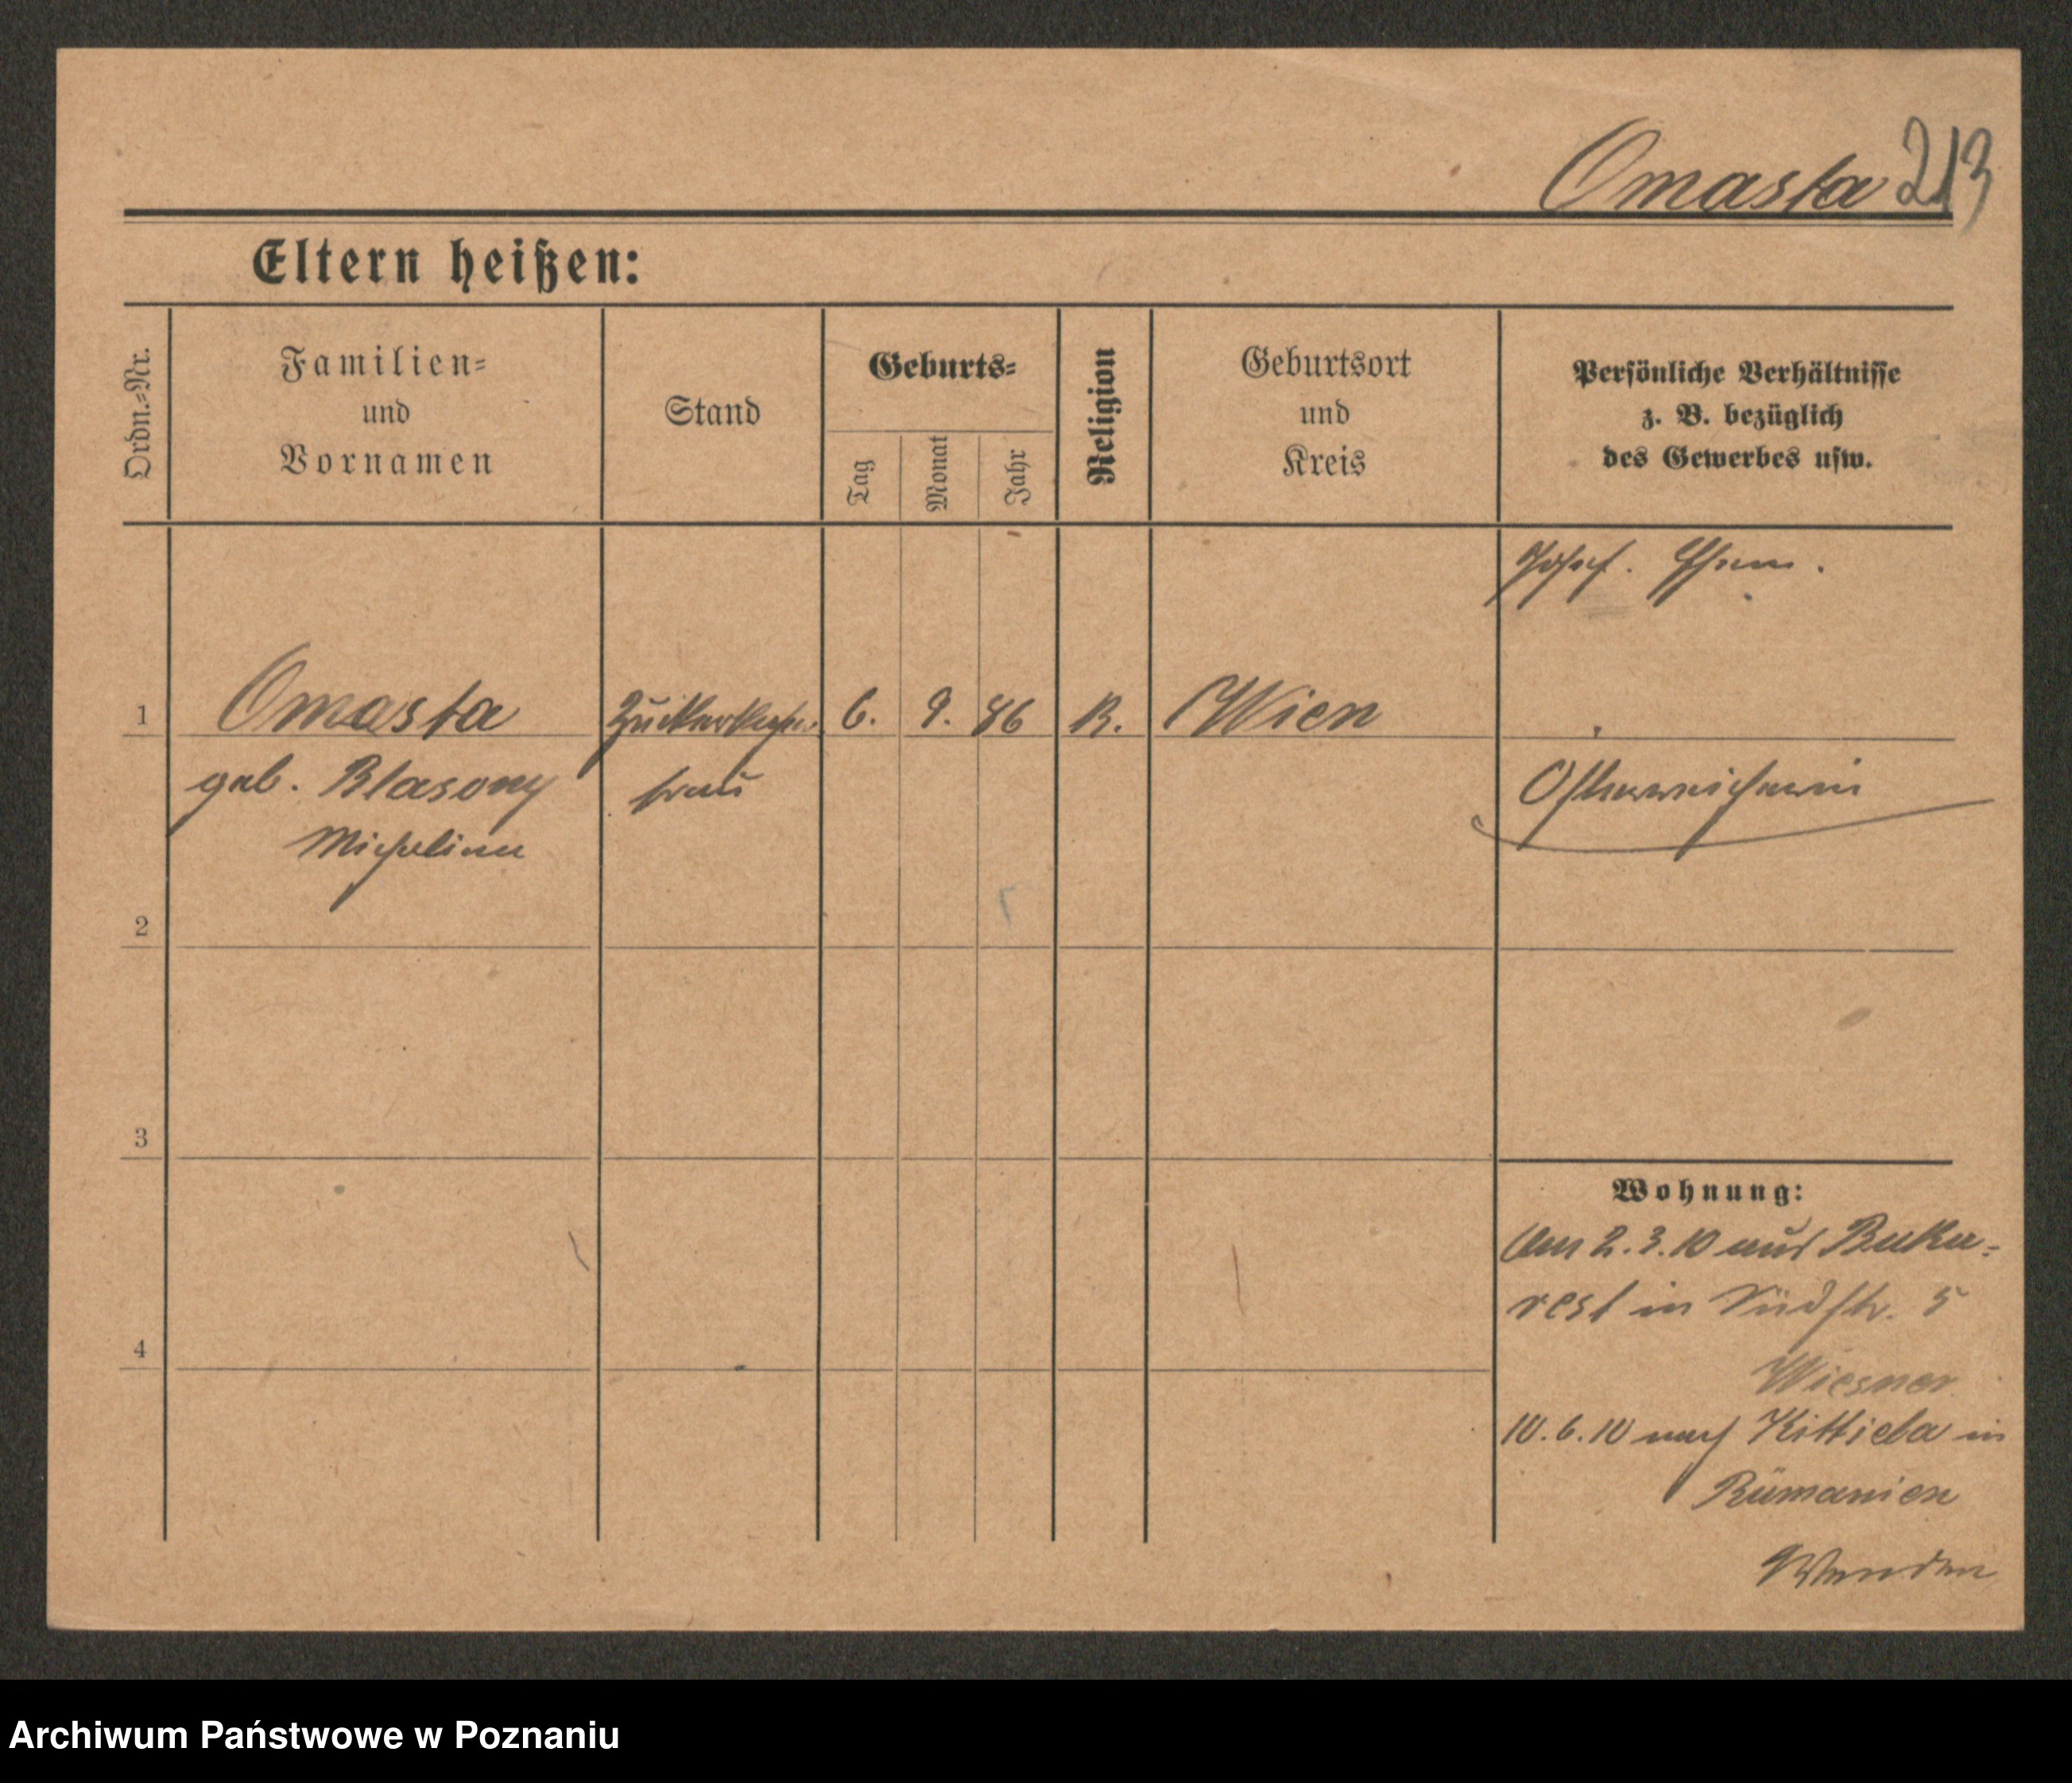 Omasta 213
Eltern heißen:
Ordn.-Nr.
Familien-
und
Vornamen
Stand
Geburts-
Tag
Monat
Jahr
Religion
Geburtsort
und
Kreis
Persönliche Verhältnisse
z. B. bezüglich
des Gewerbes usw.
Josef.
1 Omasta 6. 9. 86 R. Wien
geb. Blasony frau Österreicherin
Micheline
2
3
Wohnung:
Am 2.3.10 aus Buka-
rest in Südstr. 5
Wiesner
4
10.6.10 nach in
Rümänien
Wenden
Archiwum Państwowe w Poznaniu